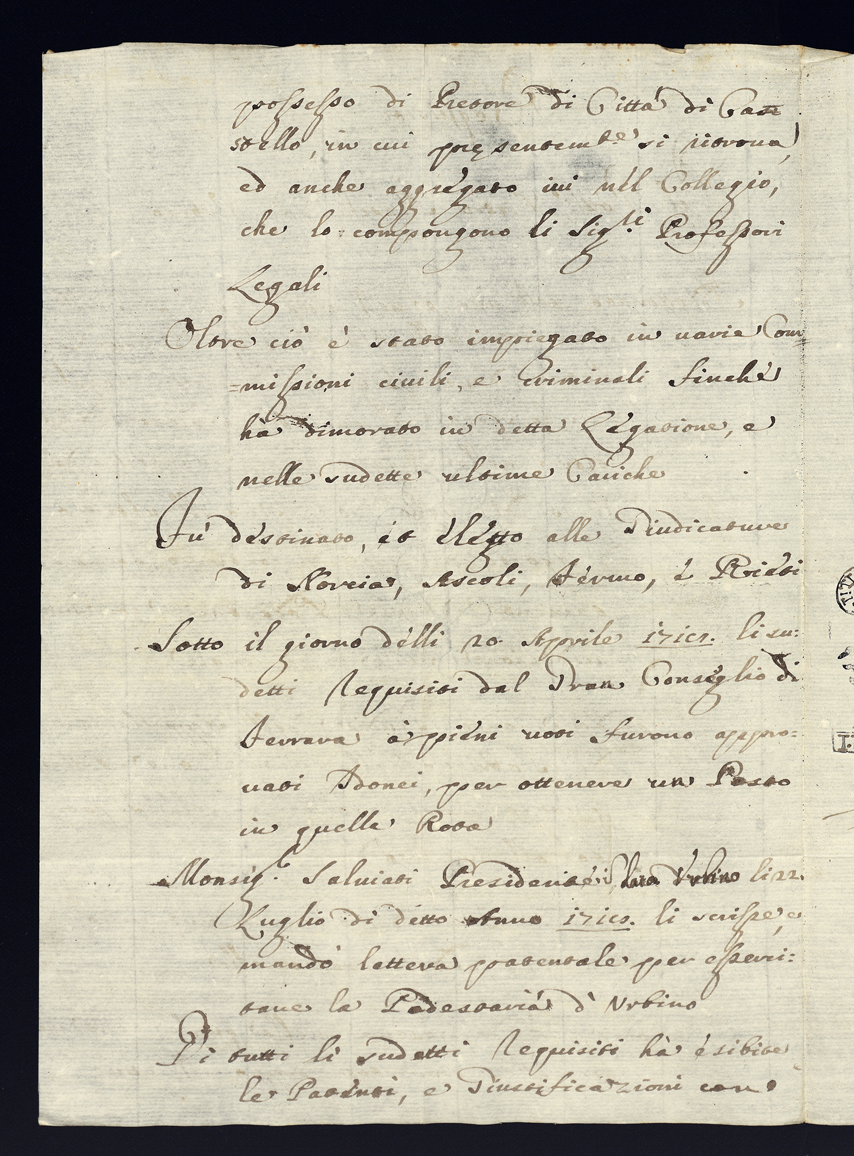 possesso di Pretore di Città di Cas
stello, in cui presentemte si ritroua,
ed anche aggregato iui nel Collegio,
che lo compongono li Sigli Professori
Legali
Oltre ciò è stato impiegato in uarie Com
=missioni ciuili, e criminali finchè
hà dimorato in detta Legatione, e
nelle sudette ultime Cariche
Fù destinato, et eletto alle Giudicature
di Norcia, Ascoli, Fermo, e Rieti
Sotto il giorno delli 20 Aprile li su:
detti Requisiti dal Gran Conseglio di
Ferrara à pieni uoti furono appro=
uati Idonei, per ottenere un Posto
in quella Rota
Monsigr. Saluiati Presidente di Urbino li 22
Luglio di detto Anno li scrisse, e
mandò lettera patentale per esserci=
tare la Podestaria d'Urbino
Di tutti li sudetti Requisiti hà esibite
le Patenti, e Giustificazioni con